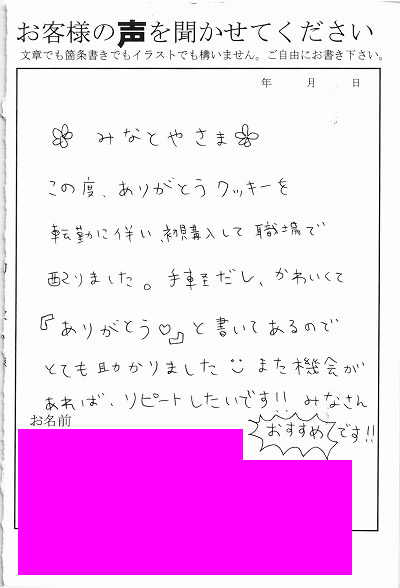 お客様の声を聞かせてください
文章でも箇条書きでもイラストでも構いません。ご自由にお書き下さい。
年 月 日
みなとやさま
この度、ありがとうクッキーを
転勤に伴い、初購入して職場で
配りました。手軽だし、かわいくて
『ありがとう♡』と書いてあるので
とても助かりました☺また機会が
あれば、リピートしたいです!! みなさん
お名前
おすすめです!!